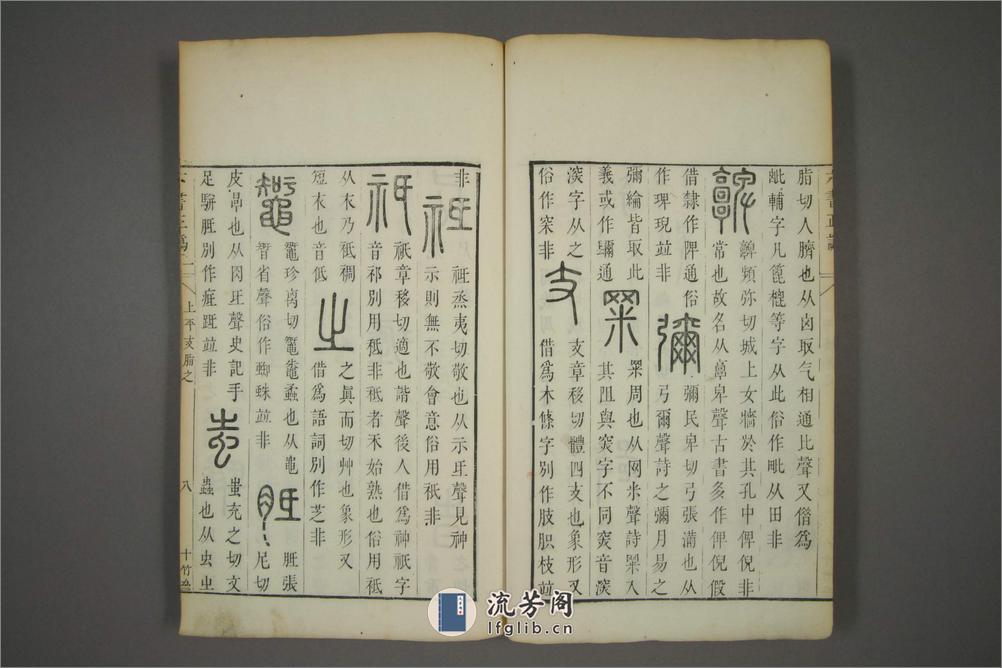 脂切人臍也从囟取气相通比聲又僭爲
毗輔字凡篦㮰等字从此俗作毗从田非
𩫫頪弥切城上女牆於其孔中俾倪非
常也故名从𩫖卑聲古書多作俾倪假
借隸作陴通俗
作埤堄並非
彌民卑切弓張滿也从
弓爾聲詩之彌月易之
彌綸皆取此
義或作
通
㓁周也从网米聲詩㓁入
其阻與㴱字不同突音深
㴱字从之
俗作穼非
支章移切體四支也象形又
借爲木條字別作肢胑枝並
非
祗烝夷切敬也从示氐聲見神
示則無不敬會意俗用祇非
衹章移切適也諧聲後人借爲神祇字
音祁別用秪非秪者禾始熟也俗用秪
从衣乃袛裯
短衣也音低
之眞而切艸也象形又
借爲語詞別作芝非
鼅珍离切鼅鼄蟊也从黽
𥏼省聲俗作蜘蛛並非
胝張
尼切
皮𦘭也从肉氐聲史記手
足騈胝別作疷跓並非
蚩充之切文
蟲也从虫㞢
六書正譌
上平支脂之
八
十竹齋
流芳阁
lfglib.cn